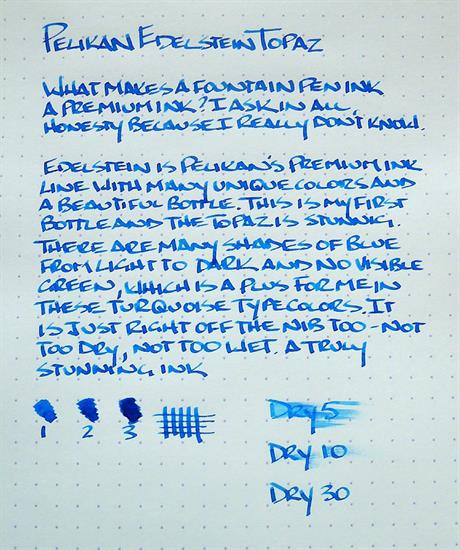 PELIKAN EDELSTEIN TOPAZ
WHAT MAKES A FOUNTAIN PEN INK
A PREMIUM INK? I ASK IN ALL
HONESTY BECAUSE I REALLY DON'T KNOW.
EDELSTEIN IS PELIKAN'S PREMIUM INK
LINE WITH MANY UNIQUE COLORS AND
A BEAUTIFUL BOTTLE. THIS IS MY FIRST
BOTTLE AND THE TOPAZ IS STUNNIG.
THERE ARE MANY SHADES OF BLUE
FROM LIGHT TO DARK AND NO VISIBLE
GREEN, WHICH IS A PLUS FOR ME IN
THESE TURQUOISE TYPE COLORS. IT
IS JUST RIGHT OFF THE NIB TOO - NOT
TOO DRY, NOT TOO WET. A TRULY
STUNNING INK
1 2 3
DRY 5
DRY 10
DRY 30